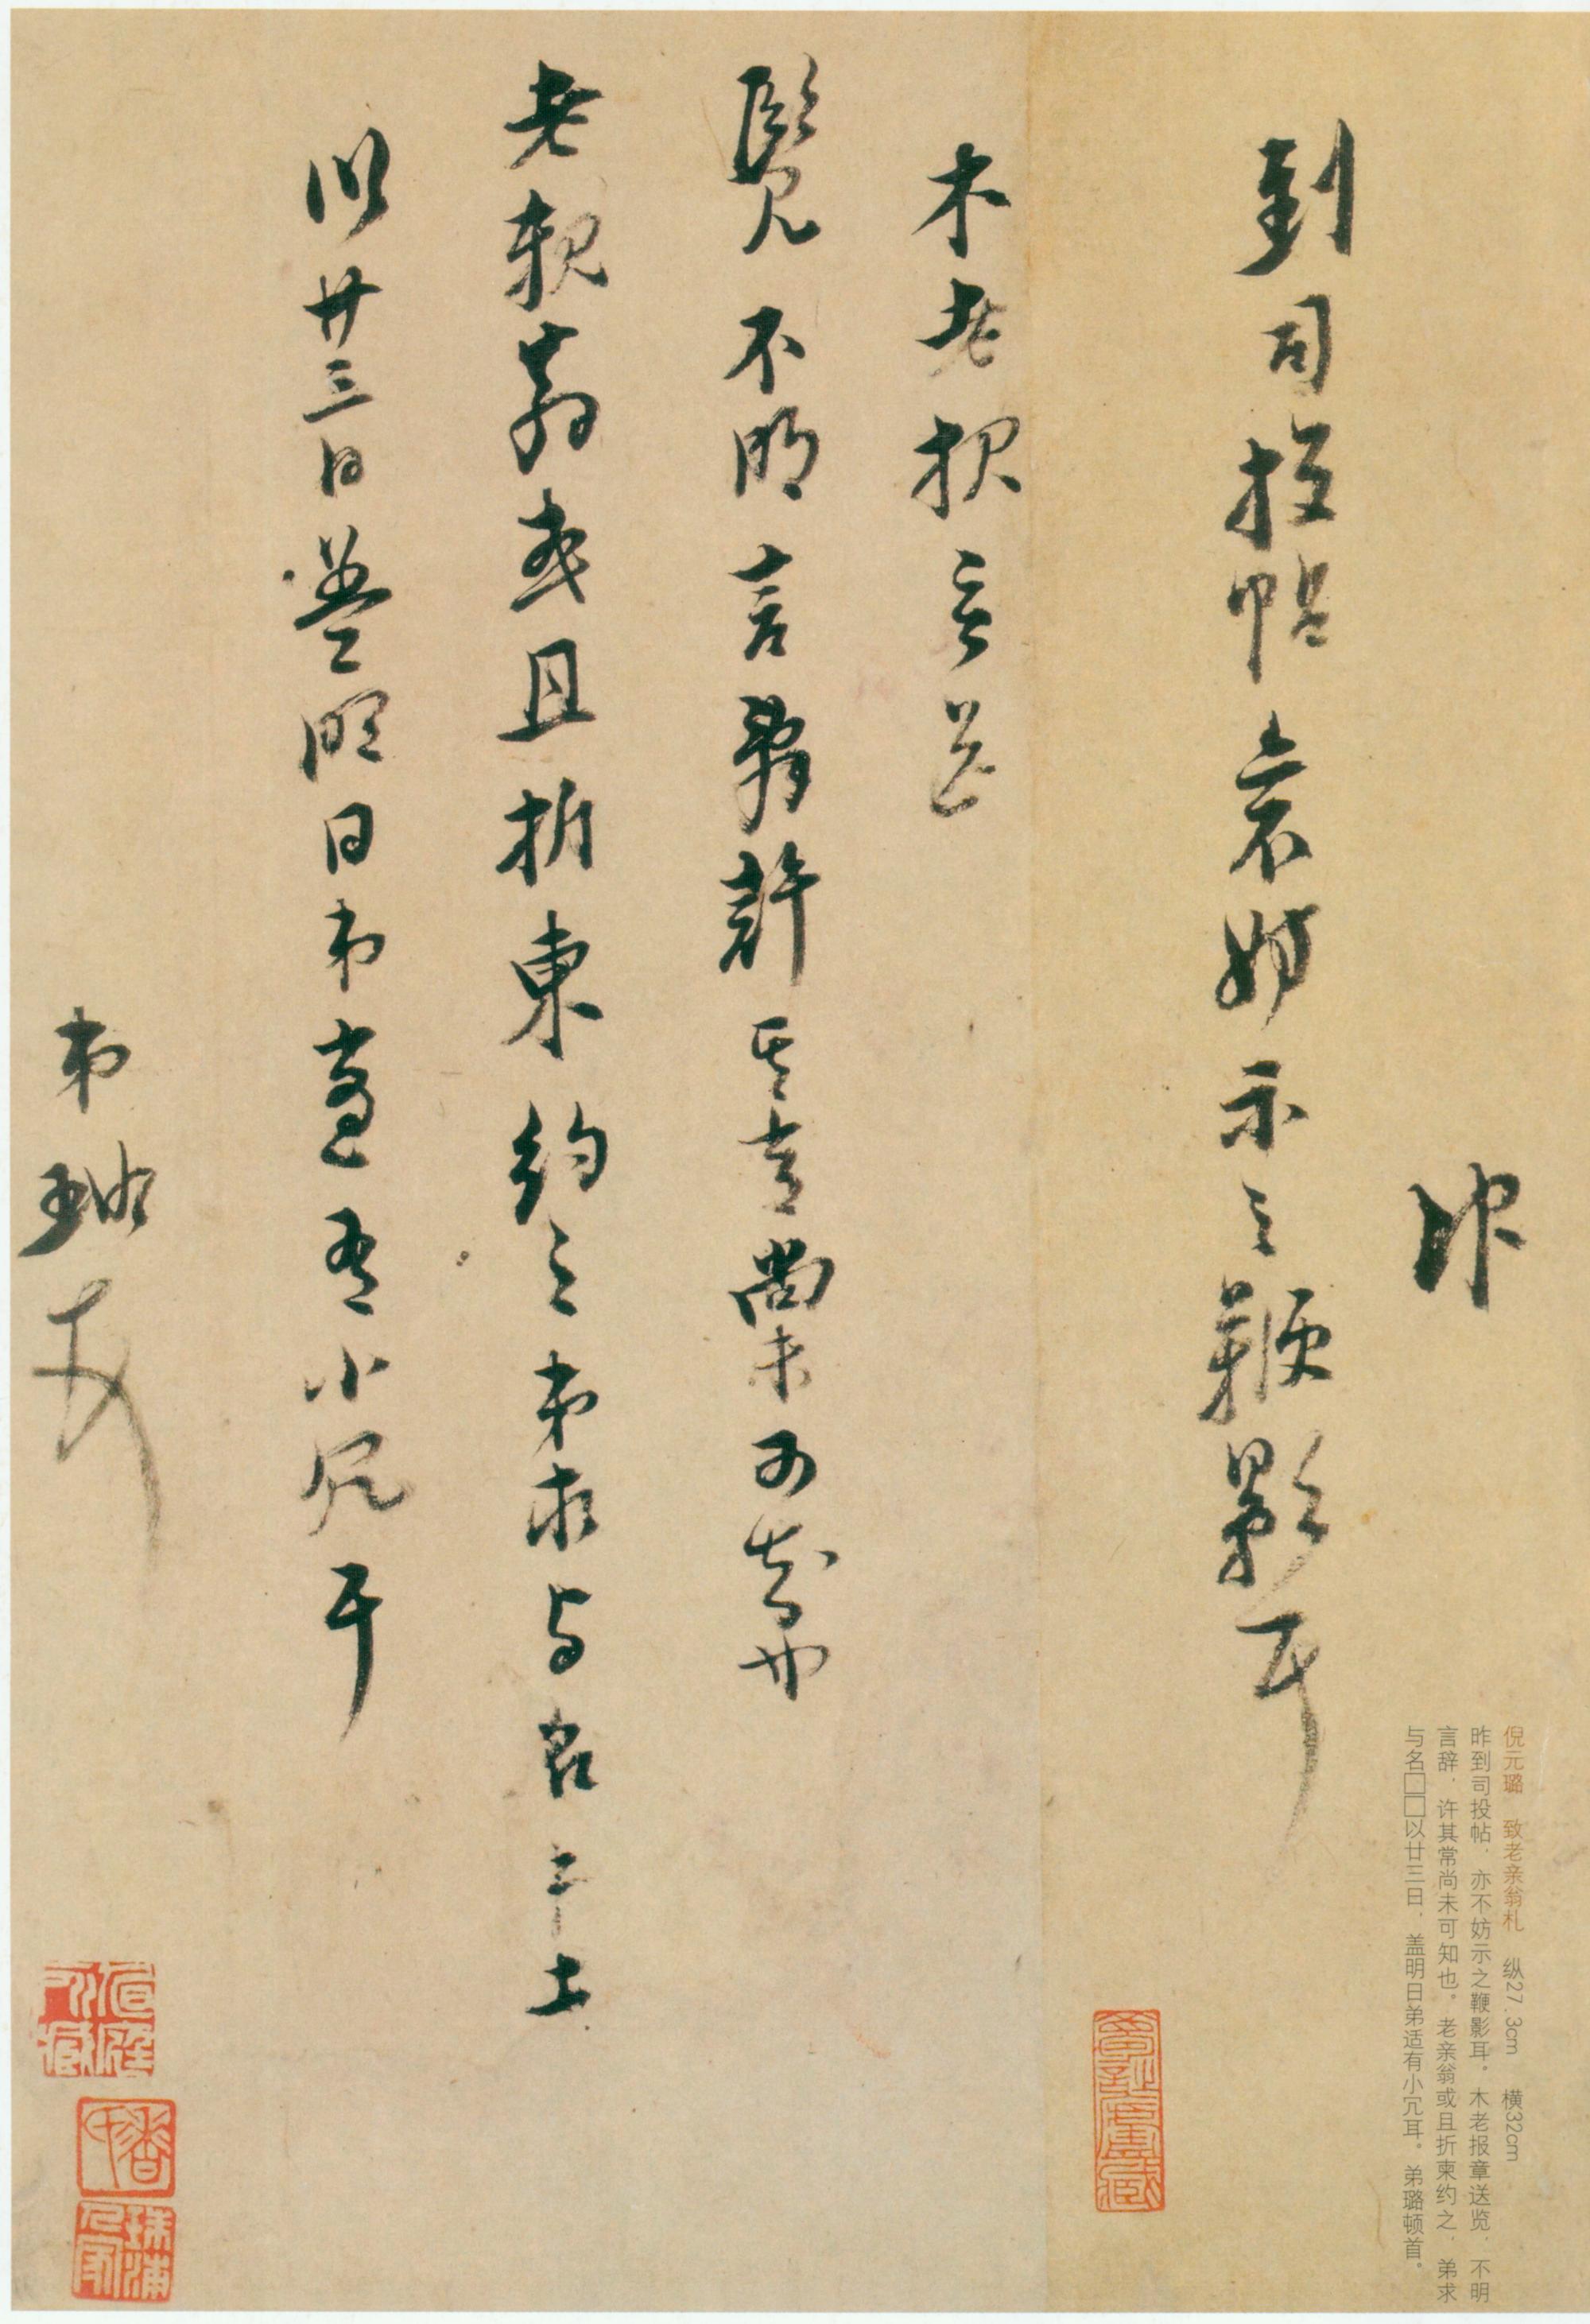 昨
到司投帖亦不妨示之鞭影耳
木老报言送
覽不明言辭許其意尚未可知也
老親翁或且折柬約之弟求与名
以廿三日蓋明日弟適有小冗耳
弟璐
倪元璐 致老亲翁札 纵27.3cm 横32cm
昨到司投帖，亦不妨示之鞭影耳。木老报章送览，不明
言辞，许其常尚未可知也。老亲翁或且折柬约之，弟求
与名□□以廿三日，盖明日弟适有小冗耳。弟璐顿首。